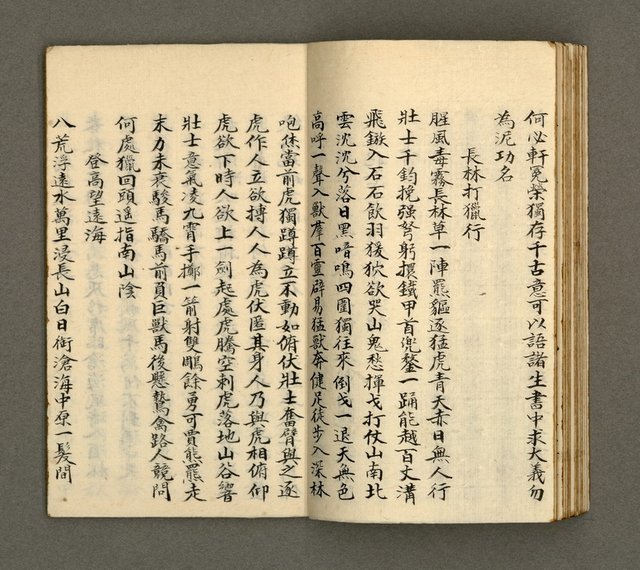 何必軒冕榮獨存千古意可以語諸生書中求大義勿
為泥功名
長林打獵行
腥風毒霧長林草一陣羆貙逐猛虎青天赤日無人行
壯士千鈞挽强弩躬擐鐵甲首兜鍪一踊能越百丈溝
飛鏃入石石飲羽猨狖欲哭山鬼愁揮戈打仗山南北
雲沈沈兮落日黑喑嗚四圍獨往來倒戈一退天無色
高呼一聲入獸羣百靈辟易猛獸奔健足徒步入深林
咆烋當前虎獨蹲蹲立不動如俯伏壯士奮臂與之逐
虎作人立欲搏人人為虎伏匿其身人乃與虎相俯仰
虎欲下時人欲上一劍起處虎騰空刺虎落地山谷響
壯士意氣凌九霄手擲一箭射雙鵰餘勇可賈熊羆走
末力未衰駿馬驕馬前負巨獸馬後懸鷙禽路人競問
何處獵回頭遥指南山陰
登高望遠海
八荒浮遠水萬里浸長山白日銜滄海中原一髮間